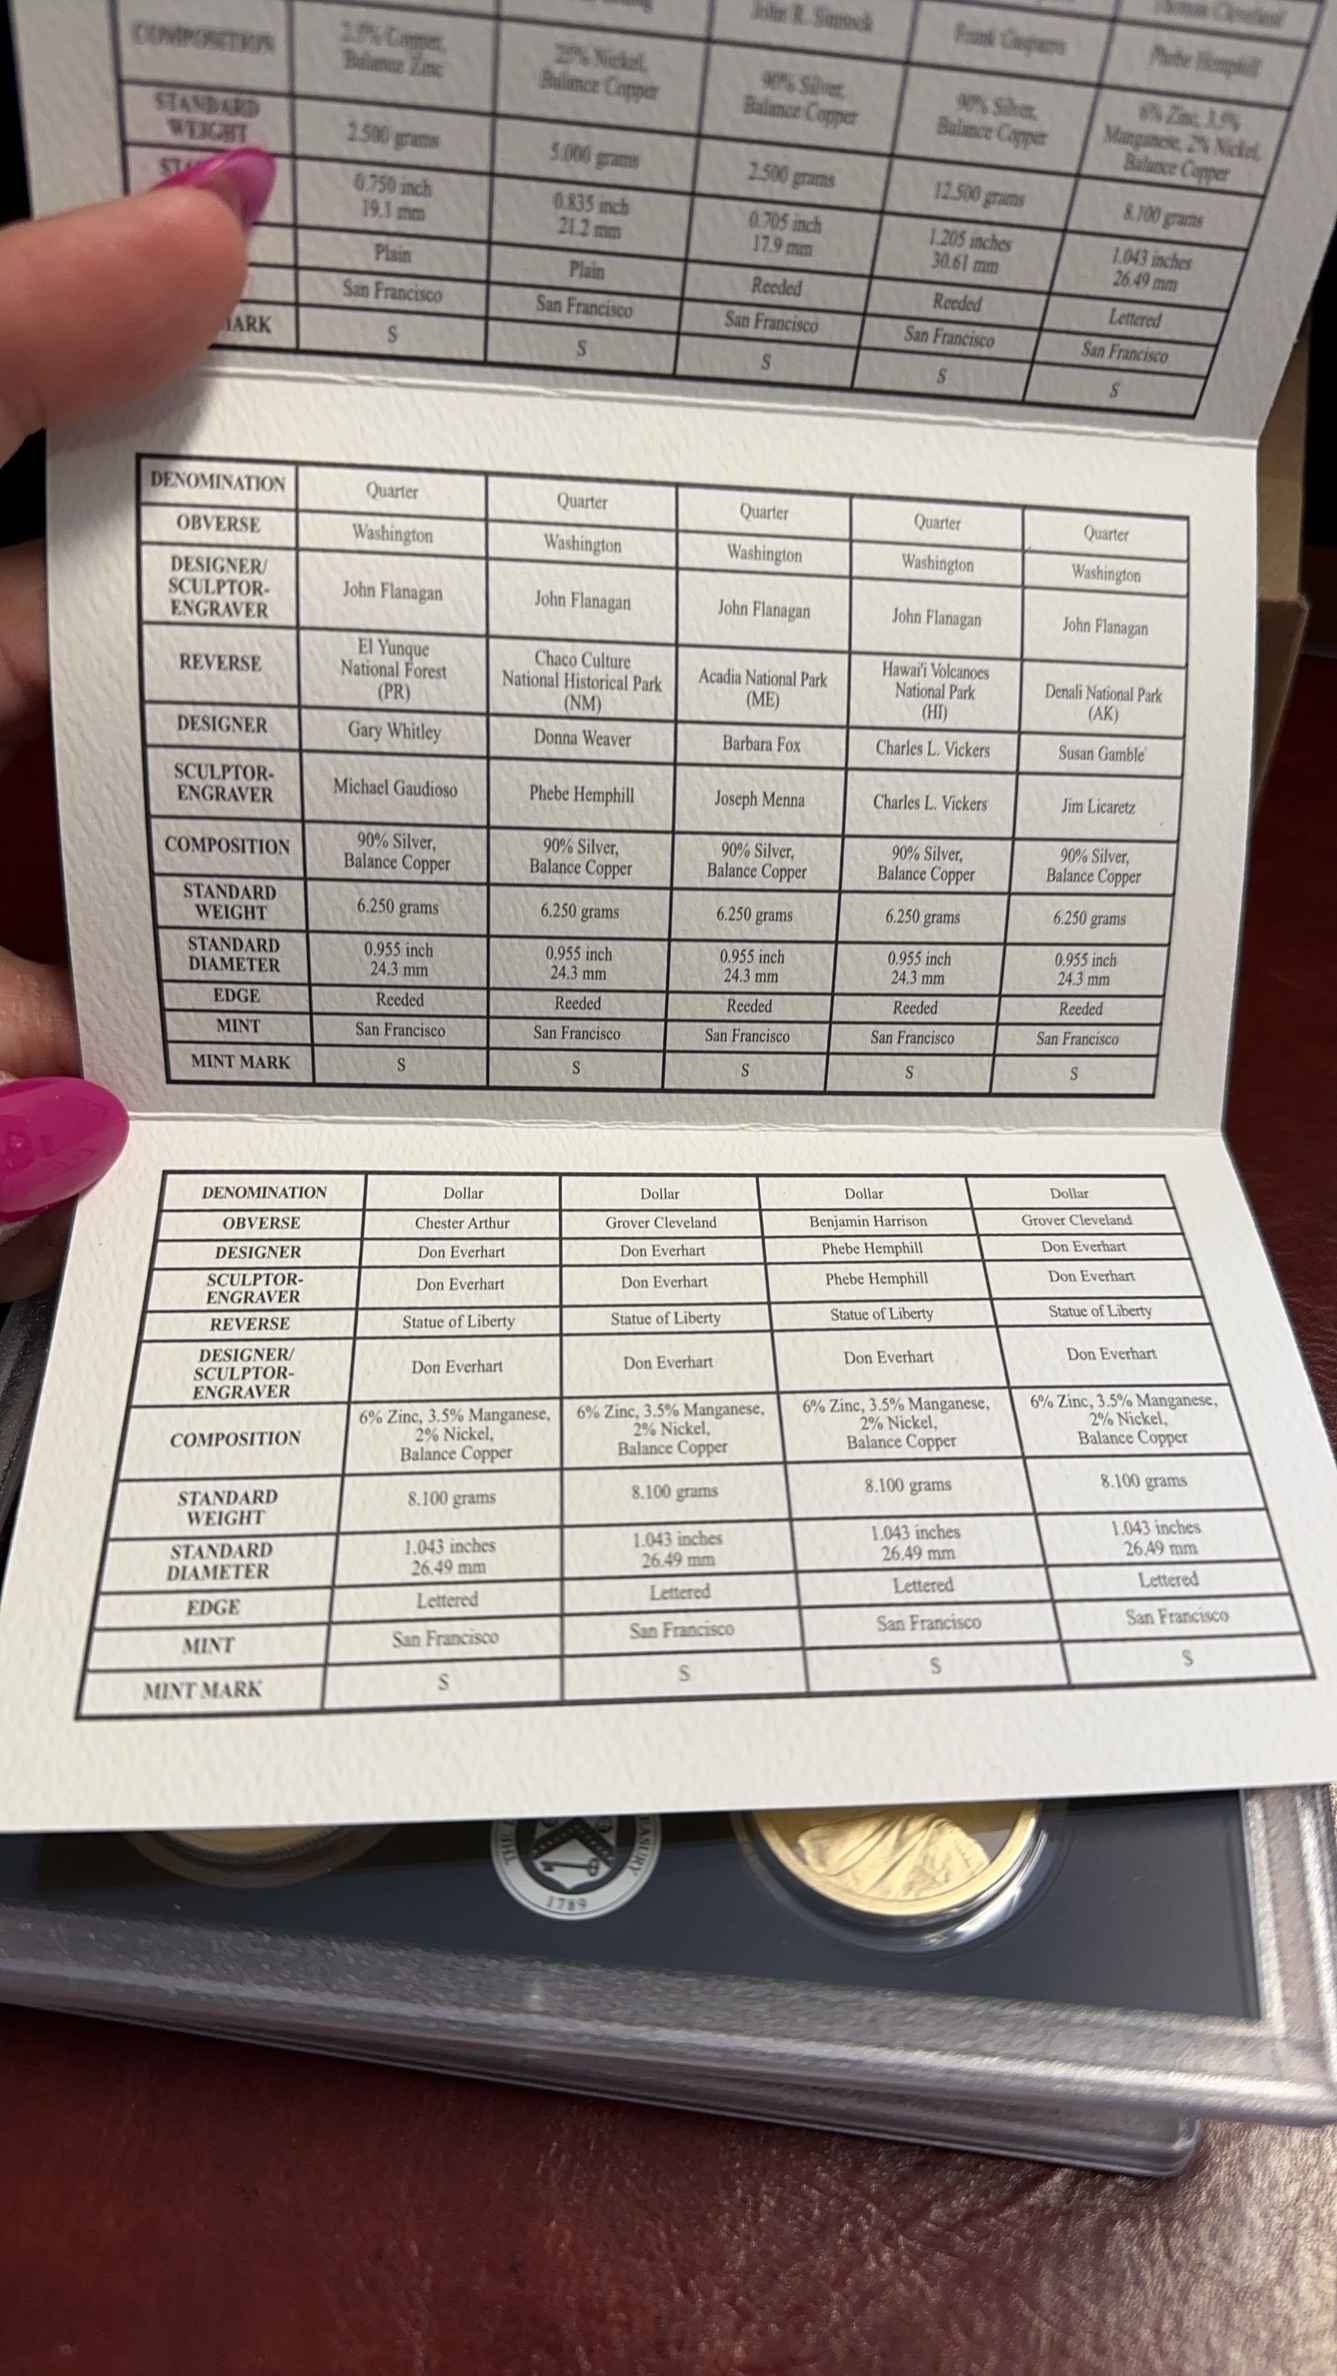 John R. Sinnock
Thomas Cleveland
COMPOSITION
2.5% Copper,
Balance Zinc
25% Nickel,
Balance Copper
90% Silver,
Balance Copper
90% Silver,
Balance Copper
Phebe Hemphill
6% Zinc, 3.5%
Manganese, 2% Nickel,
Balance Copper
STANDARD
WEIGHT
2.500 grams
5.000 grams
2.500 grams
12.500 grams
8.100 grams
0.750 inch
19.1 mm
0.835 inch
21.2 mm
0.705 inch
17.9 mm
1.205 inches
30.61 mm
1.043 inches
26.49 mm
Plain
Plain
Reeded
Reeded
Lettered
San Francisco
San Francisco
San Francisco
San Francisco
San Francisco
ARK
S
S
S
S
S
DENOMINATION
Quarter
Quarter
Quarter
Quarter
Quarter
OBVERSE
Washington
Washington
Washington
Washington
Washington
DESIGNER/
SCULPTOR-
ENGRAVER
John Flanagan
John Flanagan
John Flanagan
John Flanagan
John Flanagan
REVERSE
El Yunque
National Forest
(PR)
Chaco Culture
National Historical Park
(NM)
Acadia National Park
(ME)
Hawai'i Volcanoes
National Park
(HI)
Denali National Park
(AK)
DESIGNER
Gary Whitley
Donna Weaver
Barbara Fox
Charles L. Vickers
Susan Gamble
SCULPTOR-
ENGRAVER
Michael Gaudioso
Phebe Hemphill
Joseph Menna
Charles L. Vickers
Jim Licaretz
COMPOSITION
90% Silver,
Balance Copper
90% Silver,
Balance Copper
90% Silver,
Balance Copper
90% Silver,
Balance Copper
90% Silver,
Balance Copper
STANDARD
WEIGHT
6.250 grams
6.250 grams
6.250 grams
6.250 grams
6.250 grams
STANDARD
DIAMETER
0.955 inch
24.3 mm
0.955 inch
24.3 mm
0.955 inch
24.3 mm
0.955 inch
24.3 mm
0.955 inch
24.3 mm
EDGE
Reeded
Reeded
Reeded
Reeded
Reeded
MINT
San Francisco
San Francisco
San Francisco
San Francisco
San Francisco
MINT MARK
S
S
S
S
S
DENOMINATION
Dollar
Dollar
Dollar
Dollar
OBVERSE
Chester Arthur
Grover Cleveland
Benjamin Harrison
Grover Cleveland
DESIGNER
Don Everhart
Don Everhart
Phebe Hemphill
Don Everhart
SCULPTOR-
ENGRAVER
Don Everhart
Don Everhart
Phebe Hemphill
Don Everhart
REVERSE
Statue of Liberty
Statue of Liberty
Statue of Liberty
Statue of Liberty
DESIGNER/
SCULPTOR-
ENGRAVER
Don Everhart
Don Everhart
Don Everhart
Don Everhart
COMPOSITION
6% Zinc, 3.5% Manganese,
2% Nickel,
Balance Copper
6% Zinc, 3.5% Manganese,
2% Nickel,
Balance Copper
6% Zinc, 3.5% Manganese,
2% Nickel,
Balance Copper
6% Zinc, 3.5% Manganese,
2% Nickel,
Balance Copper
STANDARD
WEIGHT
8.100 grams
8.100 grams
8.100 grams
8.100 grams
STANDARD
DIAMETER
1.043 inches
26.49 mm
1.043 inches
26.49 mm
1.043 inches
26.49 mm
1.043 inches
26.49 mm
EDGE
Lettered
Lettered
Lettered
Lettered
MINT
San Francisco
San Francisco
San Francisco
San Francisco
MINT MARK
S
S
S
S
THE
ASURY
1789